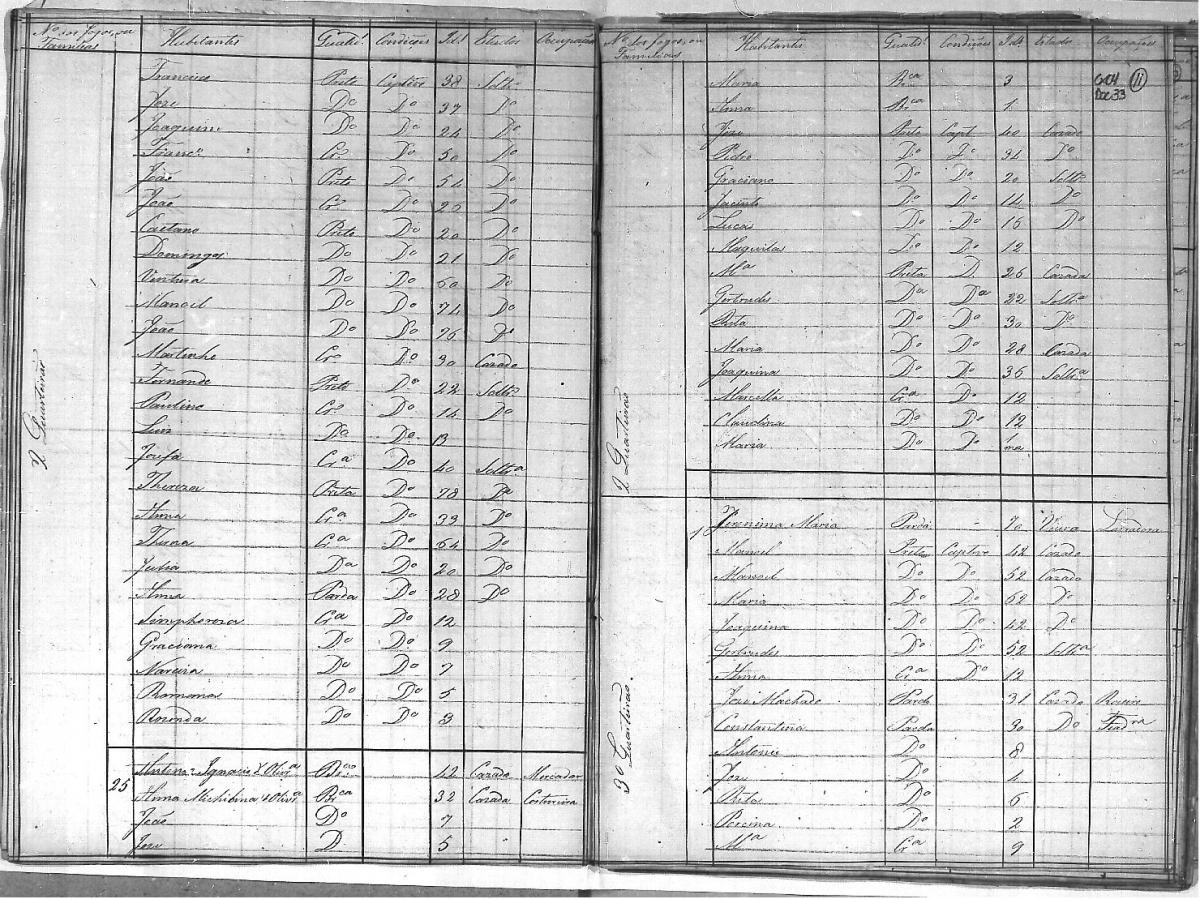 Nº dos fogos, ou Familias Habitantes Qualid Condições Id.e Estados Occupações
Francisco Preto Captivo 38 Soltro
Jose Dº Dº 37 Dº
Joaquim Dº Dº 24 Dº
Francº Crº Dº 50 Dº
João Preto Dº 54 Dº
João Crº Dº 25 Dº
Caetano Preto Dº 20 Dº
Domingos Dº Dº 21 Dº
Ventura Dº Dº 60 Dº
Manoel Dº Dº 74 Dº
João Dº Dº 26 Dº
Martinho Crº Dº 30 Cazado
Fernando Preto Dº 22 Soltro
Paulino Crº Dº 14 Dº
Luis Dº Dº 13
Josefa Crª Dº 40 Soltrª
Thereza Preta Dº 78 Dª
Anna Crª Dº 39 Dº
Crª Dº 64 Dº
Julia Dª Dº 20 Dº
Anna Parda Dº 28 Dº
Simphoroza Crª Dº 12
Graciana Dº Dº 9
Dº Dº 7
Romona Dº Dº 5
Dº Dº 3
2 Quarteirão
25 Antonio Ignacio d'Olivrª Brco 42 Cazado Mercador
Anna Michilina d'Olivrª Brca 32 Cazada Costureira
João Dº 7
Jose D 5
Nº dos fogos, ou Familias Habitantes Qualid Condições Ide Estado Occupações
Cx 04 Doc 33 11
Maria Brca 3
Anna Brca 1
Jose Preto Capt 40 Cazado
Pedro Dº Dº 34 Dº
Graciano Dº Dº 20 Soltro
Jacinto Dº Dº 14 Dº
Lucas Dº Dº 15 Dº
Dº Dº 12
Mª Preta D 26 Cazada
Gertrudes Dª Dª 22 Soltrª
Rita Dº Dº 30 Dº
Maria Dº Dº 28 Cazada
Joaquina Dº Dº 36 Soltrª
Marcella Crª Dº 12
Claudina Dº Dº 12
Maria Dº Dº 1 m
2 Quarteirão
1 Jeronima Maria Parda - 70 Viuva
Manoel Preto Captivo 42 Cazado
Manoel Dº Dº 52 Cazado
Maria Dº Dº 62 Dº
Joaquina Dº Dº 42 Dº
Gertrudes Dº Dº 52 Soltrª
Anna Crª Dº 12
Jose Machado Pardo 31 Cazado
Constantina Parda 30 Dº Fiadrª
Antonio Dº 8
Jose Dº 4
Rita Dº 6
Dº 2
Mª Crª 9
3º Quarteirão.